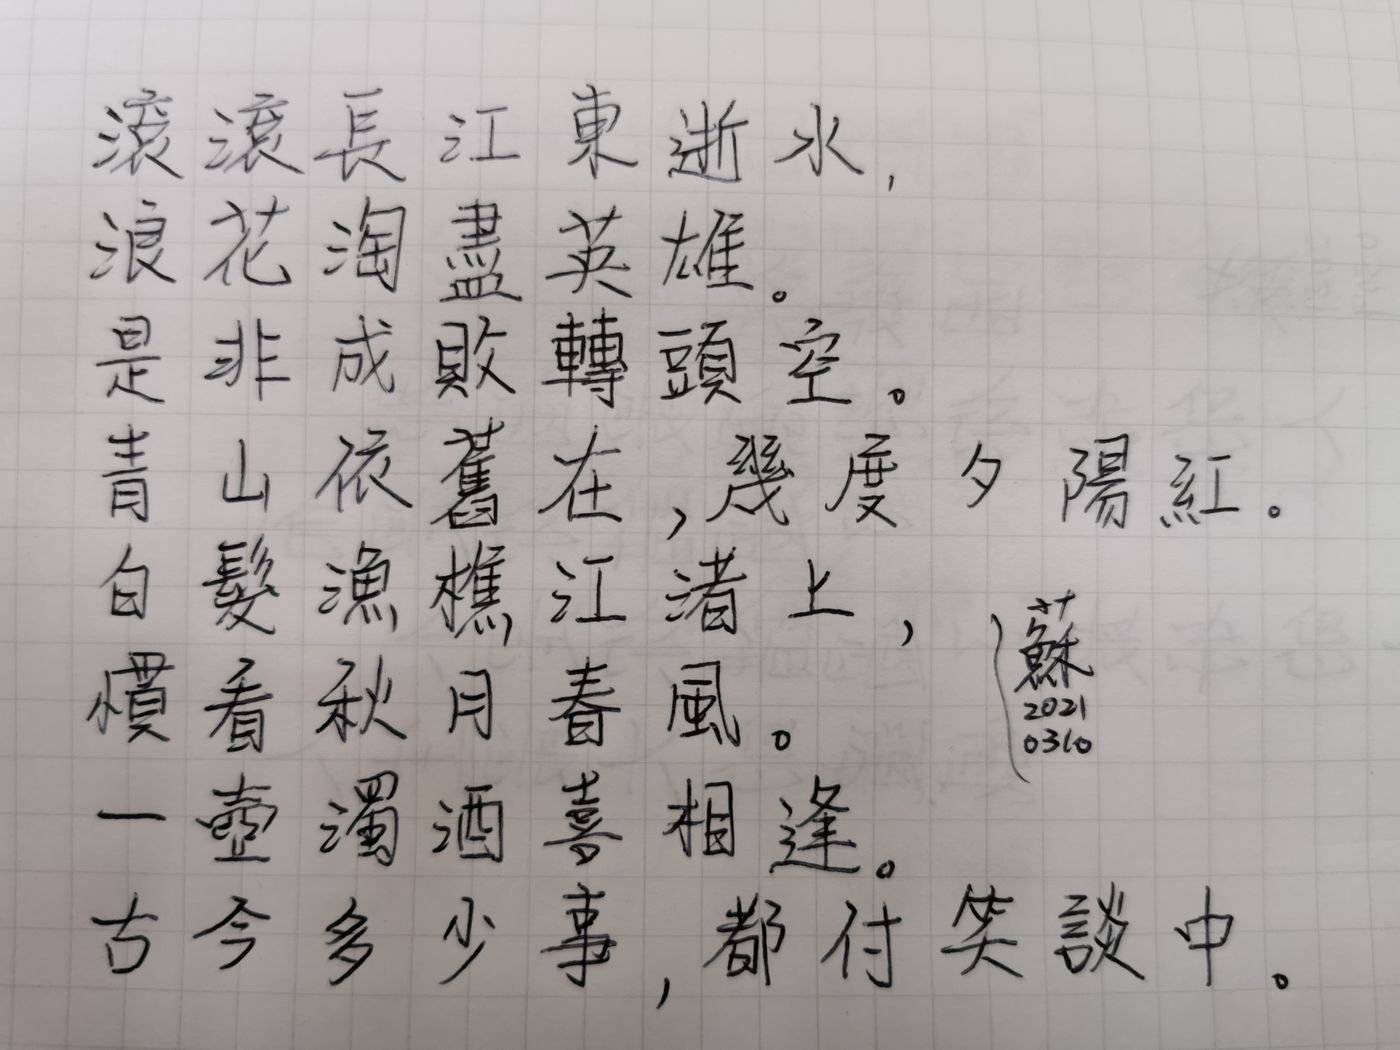 滾滾長江東逝水,
浪花淘盡英雄。
是非成敗轉頭空。
青山依舊在,幾度夕陽紅。
白髮漁樵江渚上,
慣看秋月春風。
一壺濁酒喜相逢。
古今多少事,都付笑談中。
蘇
2021
0310